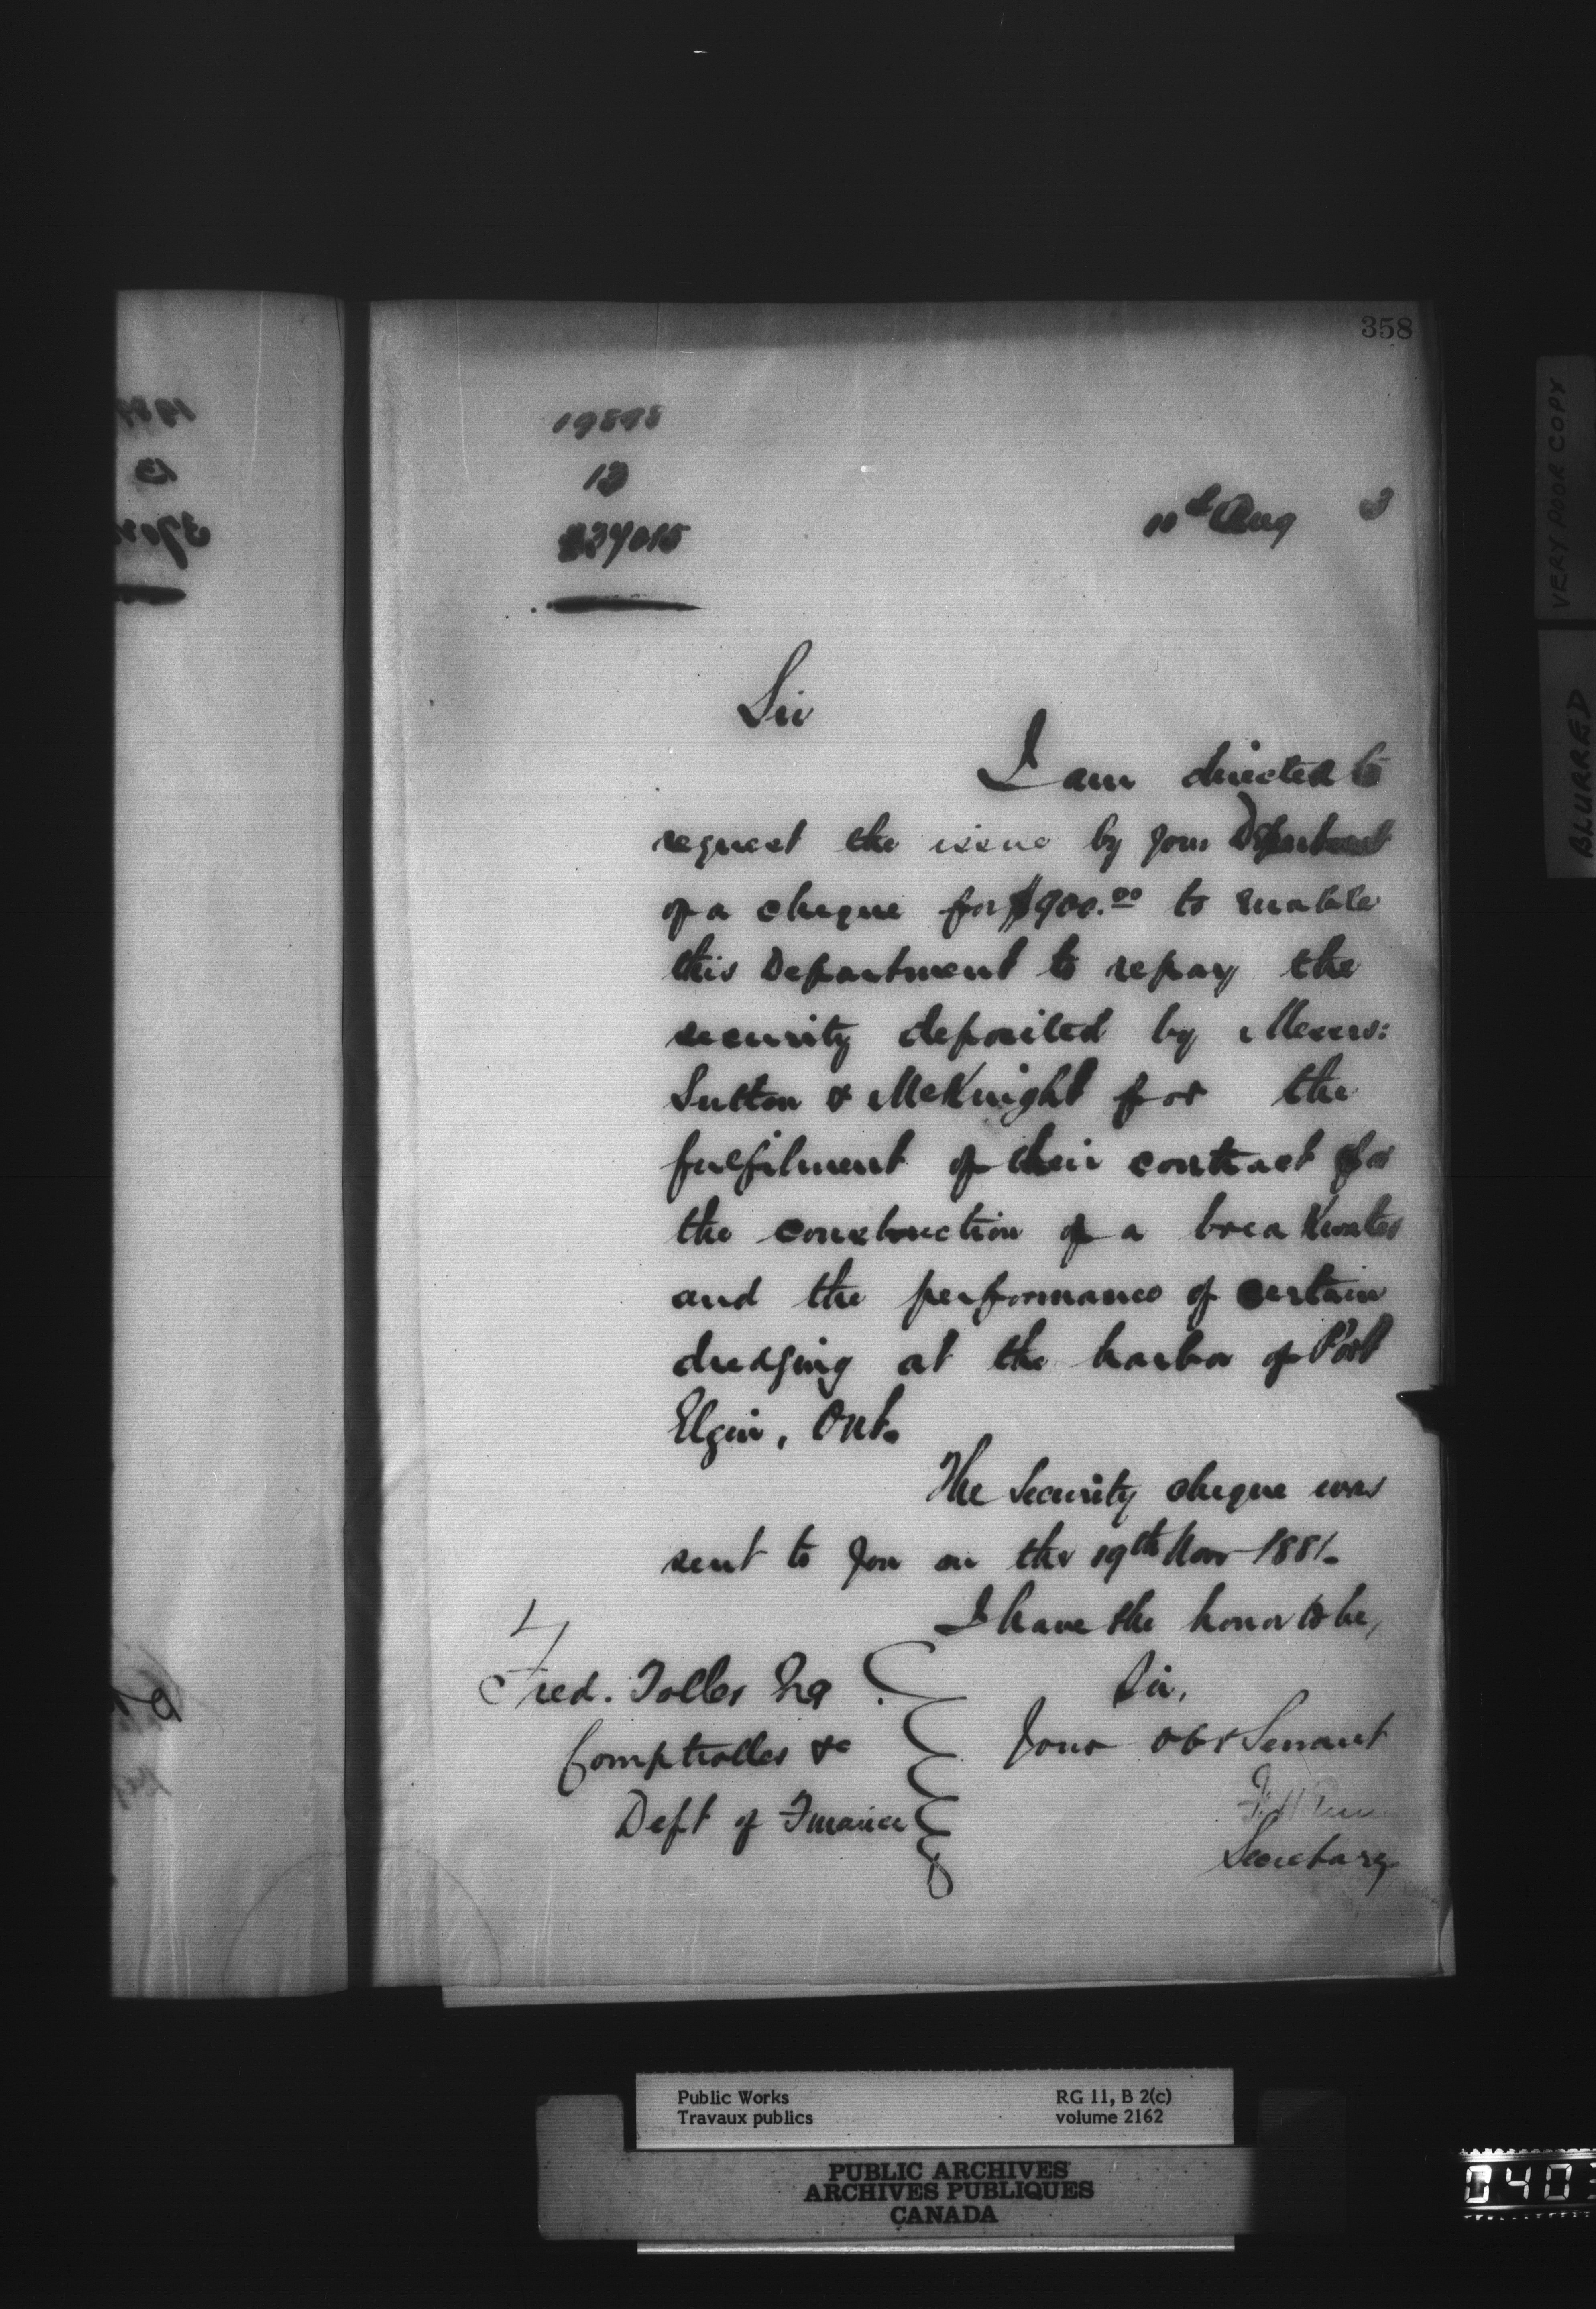 358
19898
13
37015
10th Aug 3
Sir
I am directed to
request the issue by your Department
of a cheque for $900.00 to enable
this Department to repay the
security deposited by Messrs:
Sutton & McKnight for the
fulfilment of their contract for
the construction of a breakwater
and the performance of certain
dredging at the harbor of Port
Elgin, Ont.
The Security cheque was
sent to you on the 19th Nov 1881.
I have the honor to be,
Sir,
Your obt Servant
Secretary
Fred. Tolles Esq
Comptroller &c
Dept of Finance
VERY POOR COPY
BLURRED
Public Works
Travaux publics
RG 11, B 2(c)
volume 2162
PUBLIC ARCHIVES
ARCHIVES PUBLIQUES
CANADA
040